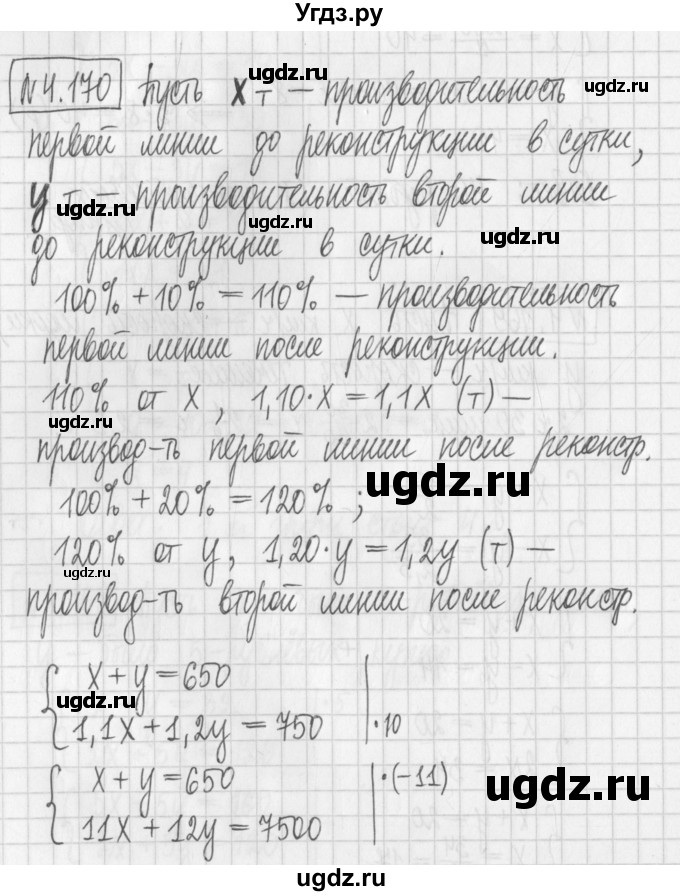 Угдз.ру
№4.170 Пусть x т — производительность
первой линии до реконструкции в сутки,
y т — производительность второй линии
ugdz.ru ugdz.ru
до реконструкции в сутки.
100% + 10% = 110% — производительность
первой линии после реконструкции.
110% от x, 1,10·x = 1,1x (т) —
ugdz.ru
производ-ть первой линии после реконстр.
ugdz.ru
100% + 20% = 120%;
120% от y, 1,20·y = 1,2y (т) —
ugdz.ru
производ-ть второй линии после реконстр.
x + y = 650
ugdz.ru
1,1x + 1,2y = 750 | ·10
x + y = 650 | ·(-11)
ugdz.ru
11x + 12y = 7500
ugdz.ru